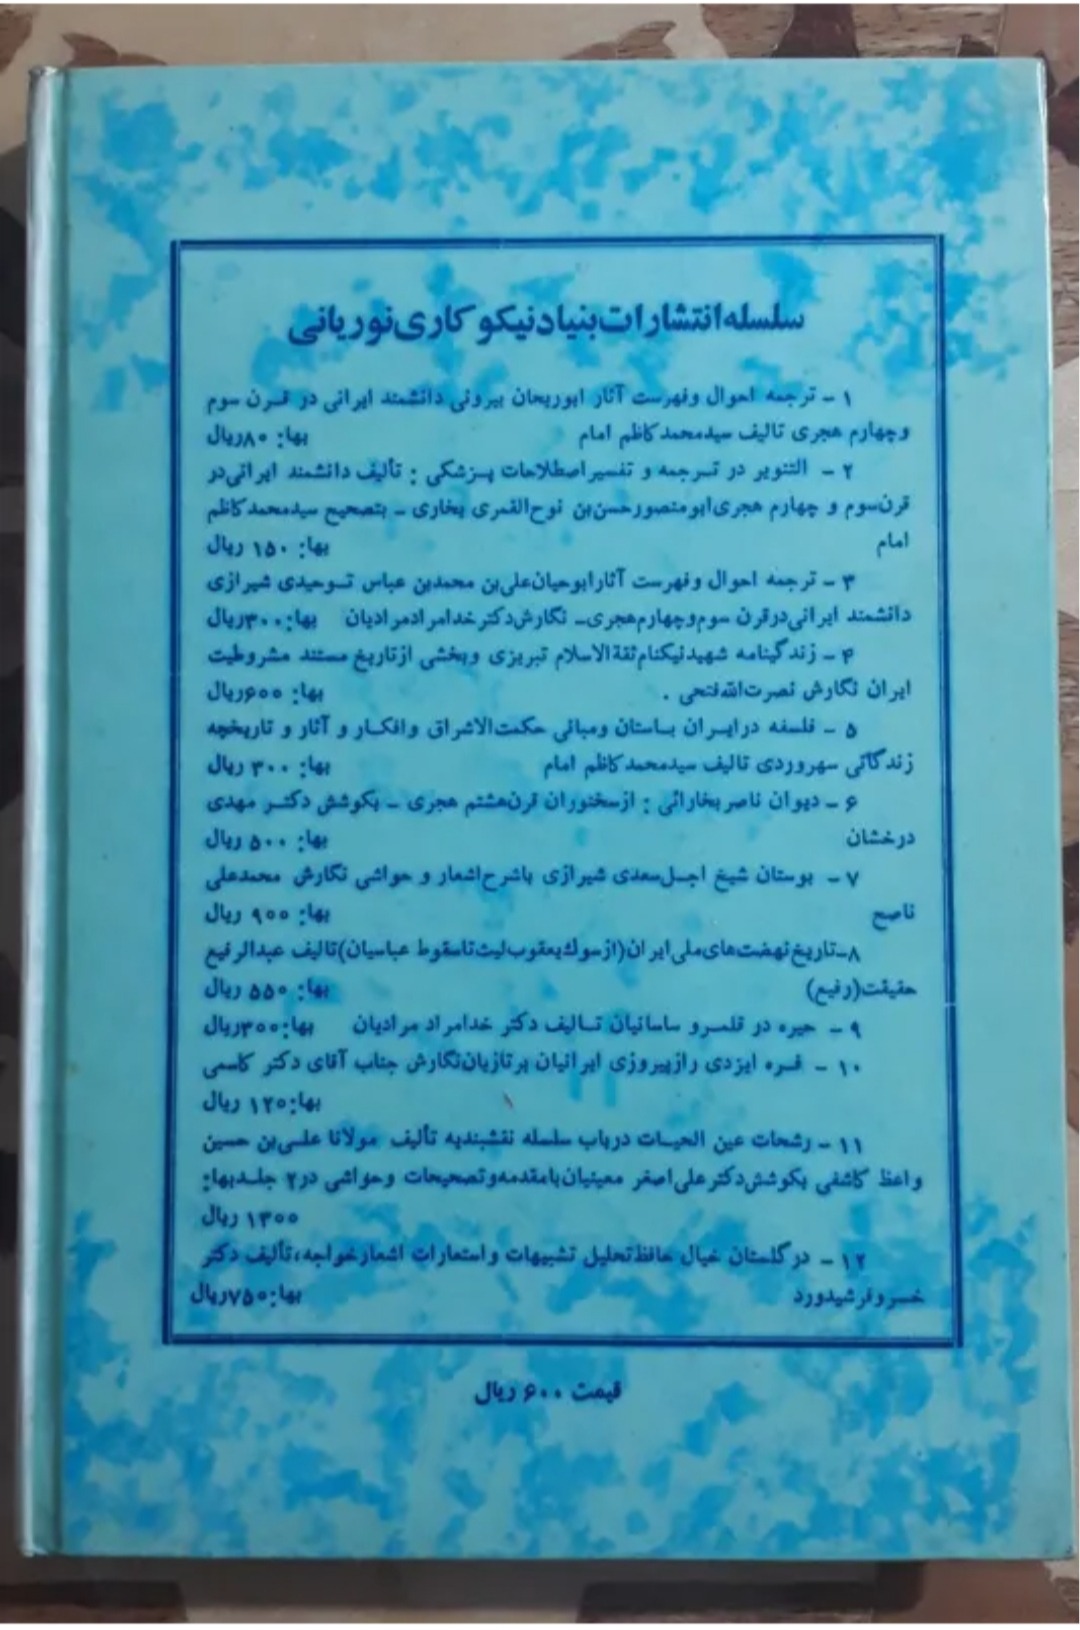 سلسله انتشارات بنیاد نیکوکاری نوریانی
۱ - ترجمه احوال و فهرست آثار ابوریحان بیرونی دانشمند ایرانی در قرن سوم
و چهارم هجری تالیف سیدمحمد کاظم امام بها: ۸۰ ریال
۲ - التنویر در ترجمه و تفسیر اصطلاحات پزشکی : تألیف دانشمند ایرانی در
قرن سوم و چهارم هجری ابومنصور حسن بن نوح القمری بخاری - بتصحیح سیدمحمد کاظم
امام بها: ۱۵۰ ریال
۳ - ترجمه احوال و فهرست آثار ابوحیان علی بن محمد بن عباس توحیدی شیرازی
دانشمند ایرانی در قرن سوم و چهارم هجری - نگارش دکتر خدامراد مرادیان بها: ۳۰۰ ریال
۴ - زندگینامه شهید نیکنام ثقة الاسلام تبریزی و بخشی از تاریخ مستند مشروطیت
ایران نگارش نصرت الله فتحی . بها: ۶۰۰ ریال
۵ - فلسفه در ایران باستان و مبانی حکمت الاشراق و افکار و آثار و تاریخچه
زندگانی سهروردی تالیف سیدمحمد کاظم امام بها: ۳۰۰ ریال
۶ - دیوان ناصر بخارائی : از سخنوران قرن هشتم هجری - بکوشش دکتر مهدی
درخشان بها: ۵۰۰ ریال
۷ - بوستان شیخ اجل سعدی شیرازی باشرح اشعار و حواشی نگارش محمدعلی
ناصح بها: ۹۰۰ ریال
۸- تاریخ نهضت های ملی ایران (از سوك یعقوب لیث تا سقوط عباسیان) تالیف عبدالرفیع
حقیقت (رفیع) بها: ۵۵۰ ریال
۹ - حیره در قلمرو ساسانیان تالیف دکتر خدامراد مرادیان بها: ۳۰۰ ریال
۱۰ - فره ایزدی راز پیروزی ایرانیان بر تازیان نگارش جناب آقای دکتر کاسمی
بها: ۱۲۰ ریال
۱۱ - رشحات عین الحیات در باب سلسله نقشبندیه تألیف مولانا علی بن حسین
واعظ کاشفی بکوشش دکتر علی اصغر معینیان بامقدمه و تصحیحات و حواشی در ۲ جلد بها:
۱۳۰۰ ریال
۱۲ - در گلستان خیال حافظ تحلیل تشبیهات و استعارات اشعار خواجه، تألیف دکتر
خسرو فرشیدورد بها: ۷۵۰ ریال
قیمت ۶۰۰ ریال